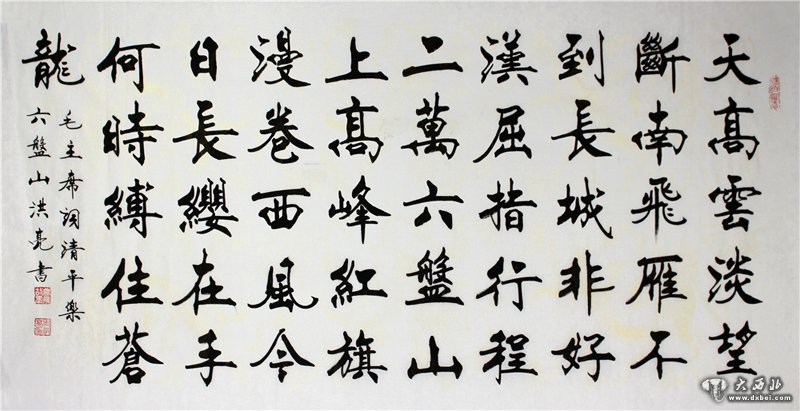 天高雲淡望
斷南飛雁不
到長城非好
漢屈指行程
二萬六盤山
上高峰紅旗
漫卷西風今
日長纓在手
何時縛住蒼
龍
毛主席詞清平樂
六盤山洪亮書
大西北
www.dxbei.com